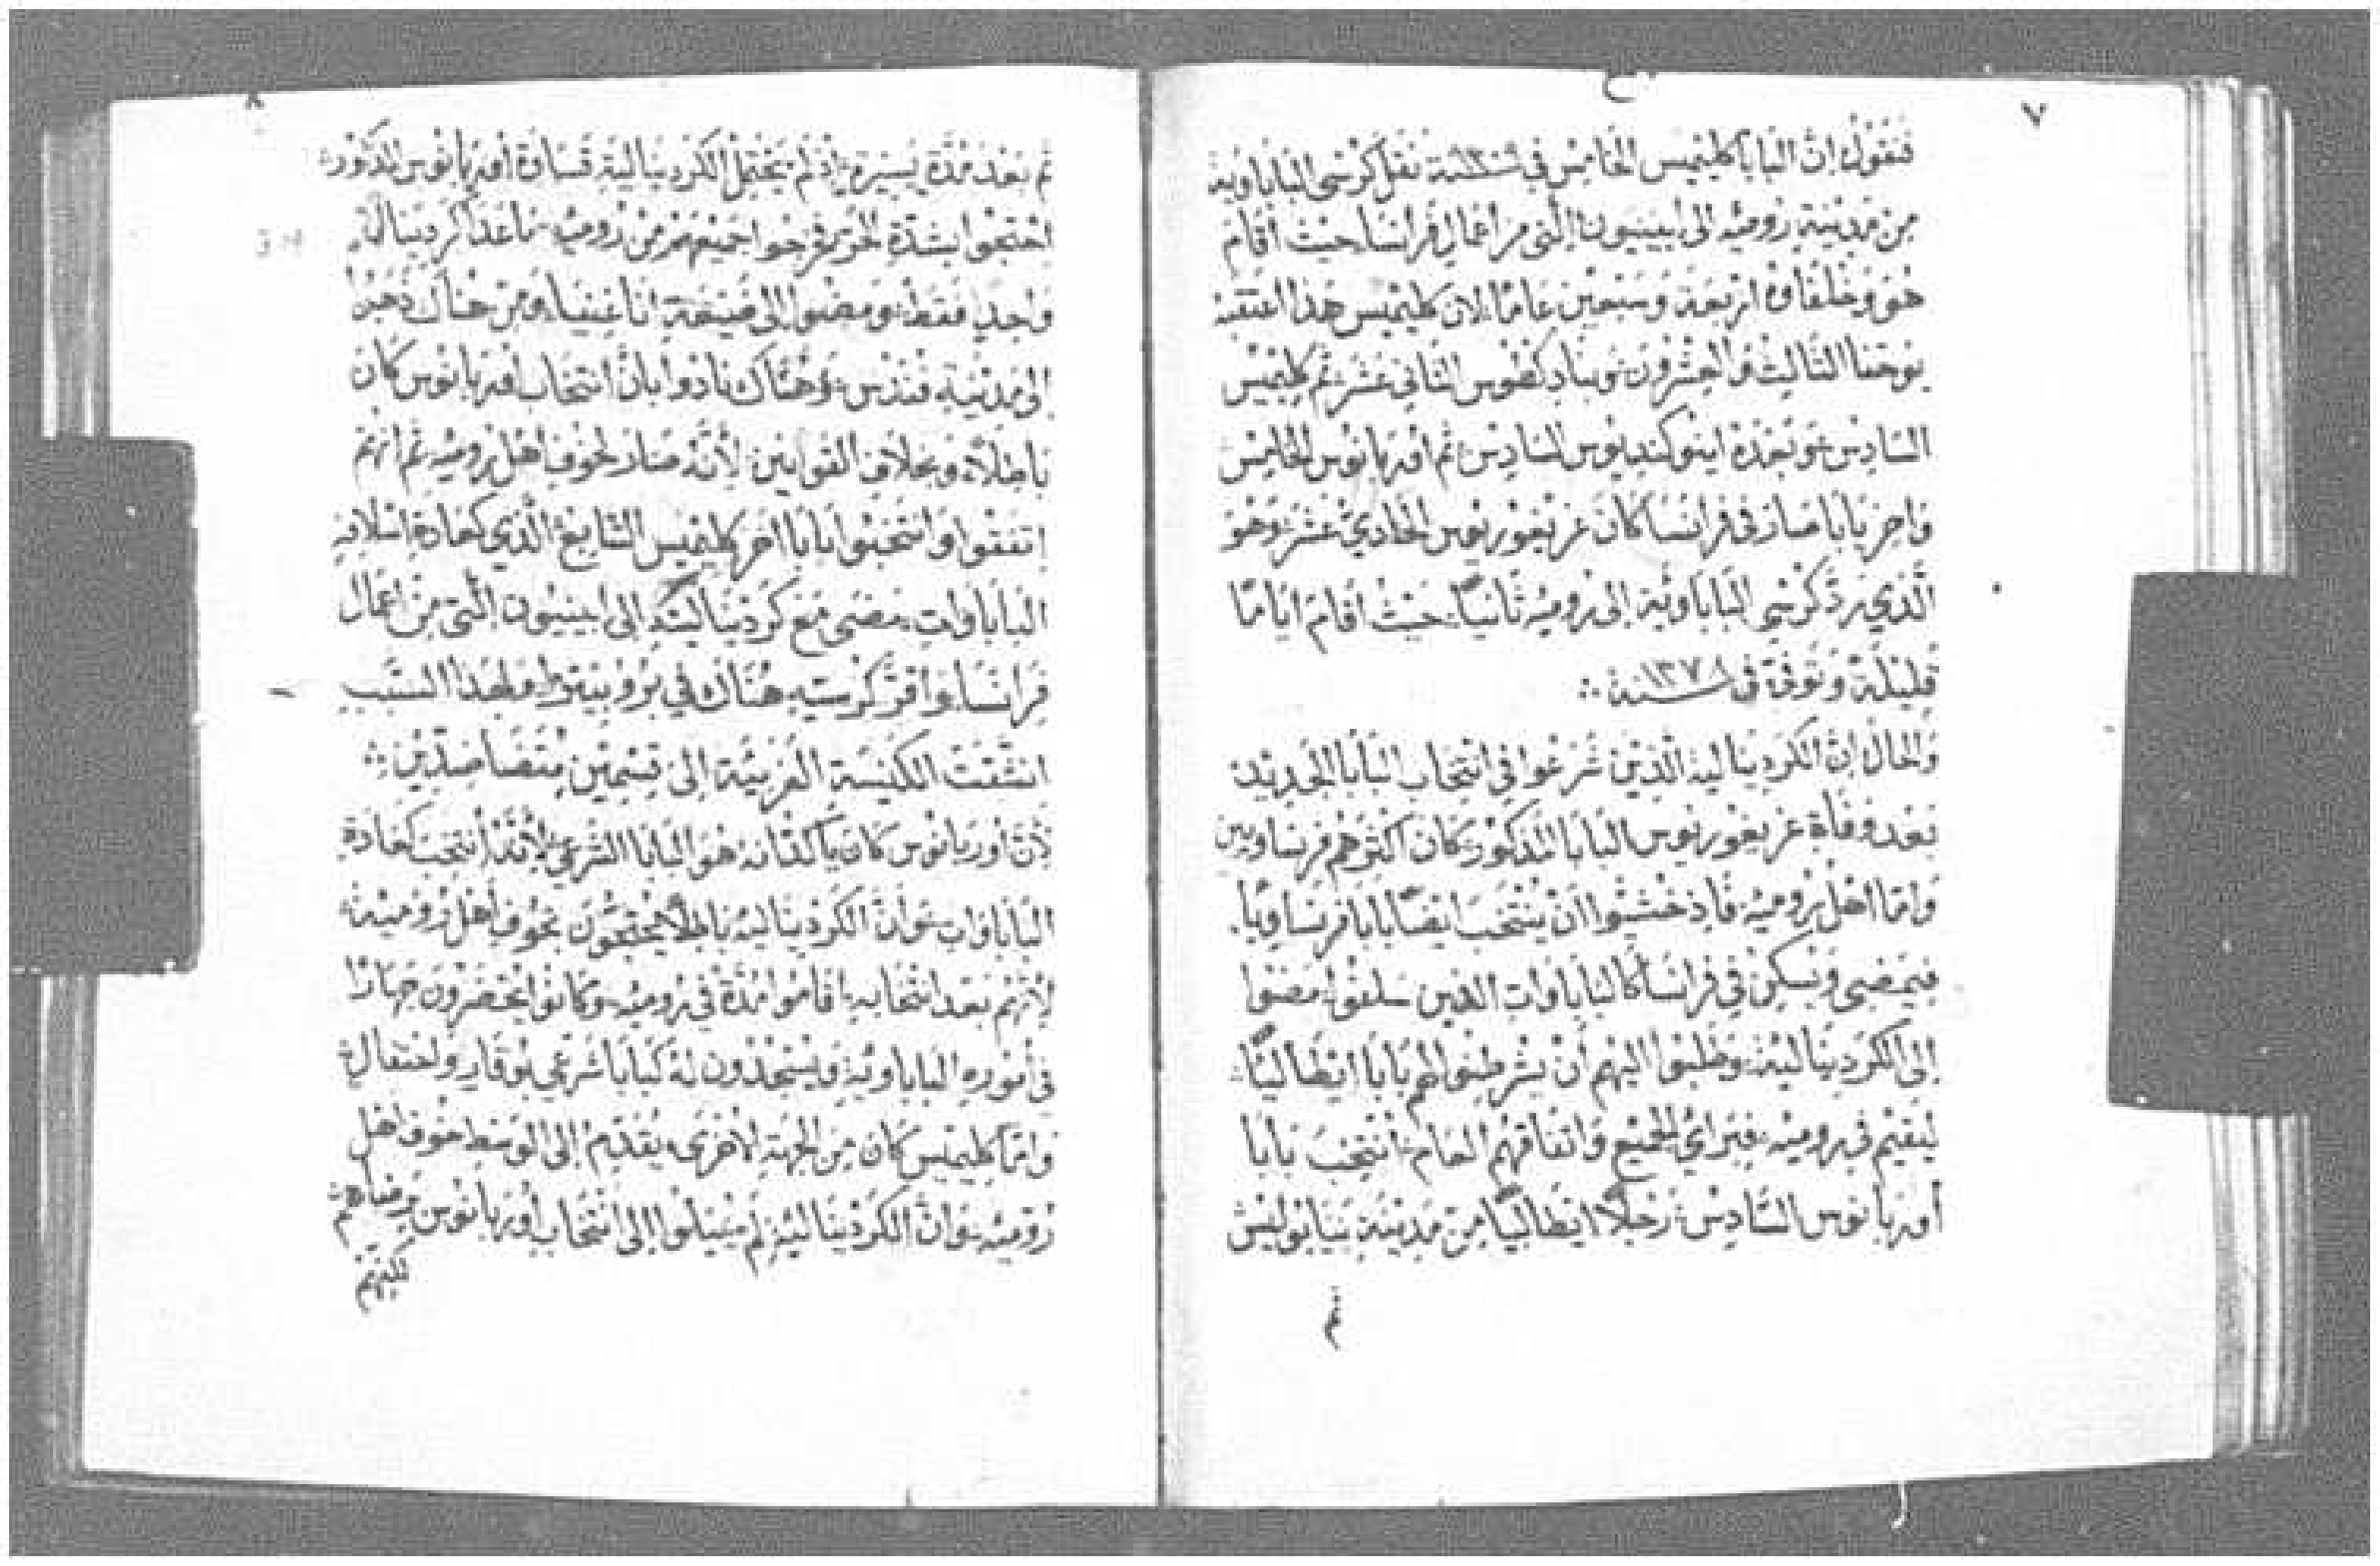 ٧
فنقول ان البابا كليميس الخامس في سنة نقل كرسي الباباوية
من مدينة رومية الى ابينيون التي من اعمال فرانسا حيث اقام
هو وخلفاوه اربعة وسبعين عاما لان كليميس هذا اعتقبه
يوحنا الثالث والعشرون وبناديكطوس الثاني عشر ثم كليميس
السادس وبعده اينوكنديوس السادس ثم اوربانوس الخامس
واخر بابا صار في فرانسا كان غريغوريوس الحادي عشر وهو
الذي رد كرسي الباباوية الى رومية ثانيا حيث اقام اياما
قليلة وتوفى في سنة ١٣٧٨ ؞
والحال ان الكردينالية الذين شرعوا في انتخاب البابا الجديد
بعد وفاة غريغوريوس البابا المذكور كان اكثرهم فرنساويين
واما اهل رومية فاذ خشيوا ان ينتخب ايضا بابا فرنساويا
فيمضي ويسكن في فرانسا كالباباوات الذين سلفوا مضوا
الى الكردينالية وطلبوا اليهم ان يشرطنوا لهم بابا ايطاليا
ليقيم في رومية فبراي الجميع واتفاقهم العام انتخب بابا
أوربانوس السادس رجلا ايطاليا من مدينة نيابوليس
ثم
٨
ثم بعد مدة يسيرة اذ لم يحتمل الكردينالية قساوة اوربانوس المذكور
احتجوا بشدة الحر فخرجوا جميعهم من رومية ماعدا كردينال
واحد فقط ومضوا الى ضيعة اناغنيا ومن هناك ذهبوا
الى مدينة فندس وهناك نادوا بان انتخاب اوربانوس كان
باطلا وبخلاف القوانين لأنه صار لخوف اهل رومية ثم انهم
اتفقوا وانتخبوا بابا اخر كليميس السابع الذي كعادة اسلافه
الباباوات مضى مع كرديناليته الى ابينيون التي من اعمال
فرانسا واقر كرسيه هناك في ولهذا السبب
انشقت الكنيسة الغربية الى قسمين متضاضدين ؞
لأن أوربانوس كان ياكد انه هو البابا الشرعي لأنه أنتخب كعادة
الباباوات وان الكردينالية باطلا يحتجون بخوف أهل رومية
لأنهم بعد انتخابه اقاموا مدة في رومية وكانوا يحضرون جهارا
في أموره الباباوية ويسجدون له كبابا شرعي بوقار واحتفال
واما كليميس كان من الجهة الاخرى يقدم الى الوسط خوف اهل
رومية وان الكردينالية لم يميلوا الى انتخاب أوربانوس برضاهم
لكنهم